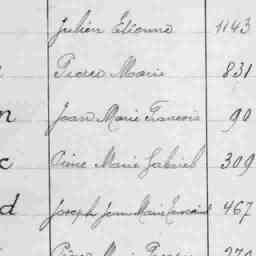 Julien Etienne 1143
Pierre Marie 831
n Jean Marie Francois 90
c Pierre Marie Gabriel 309
d Joseph Jean Marie 467